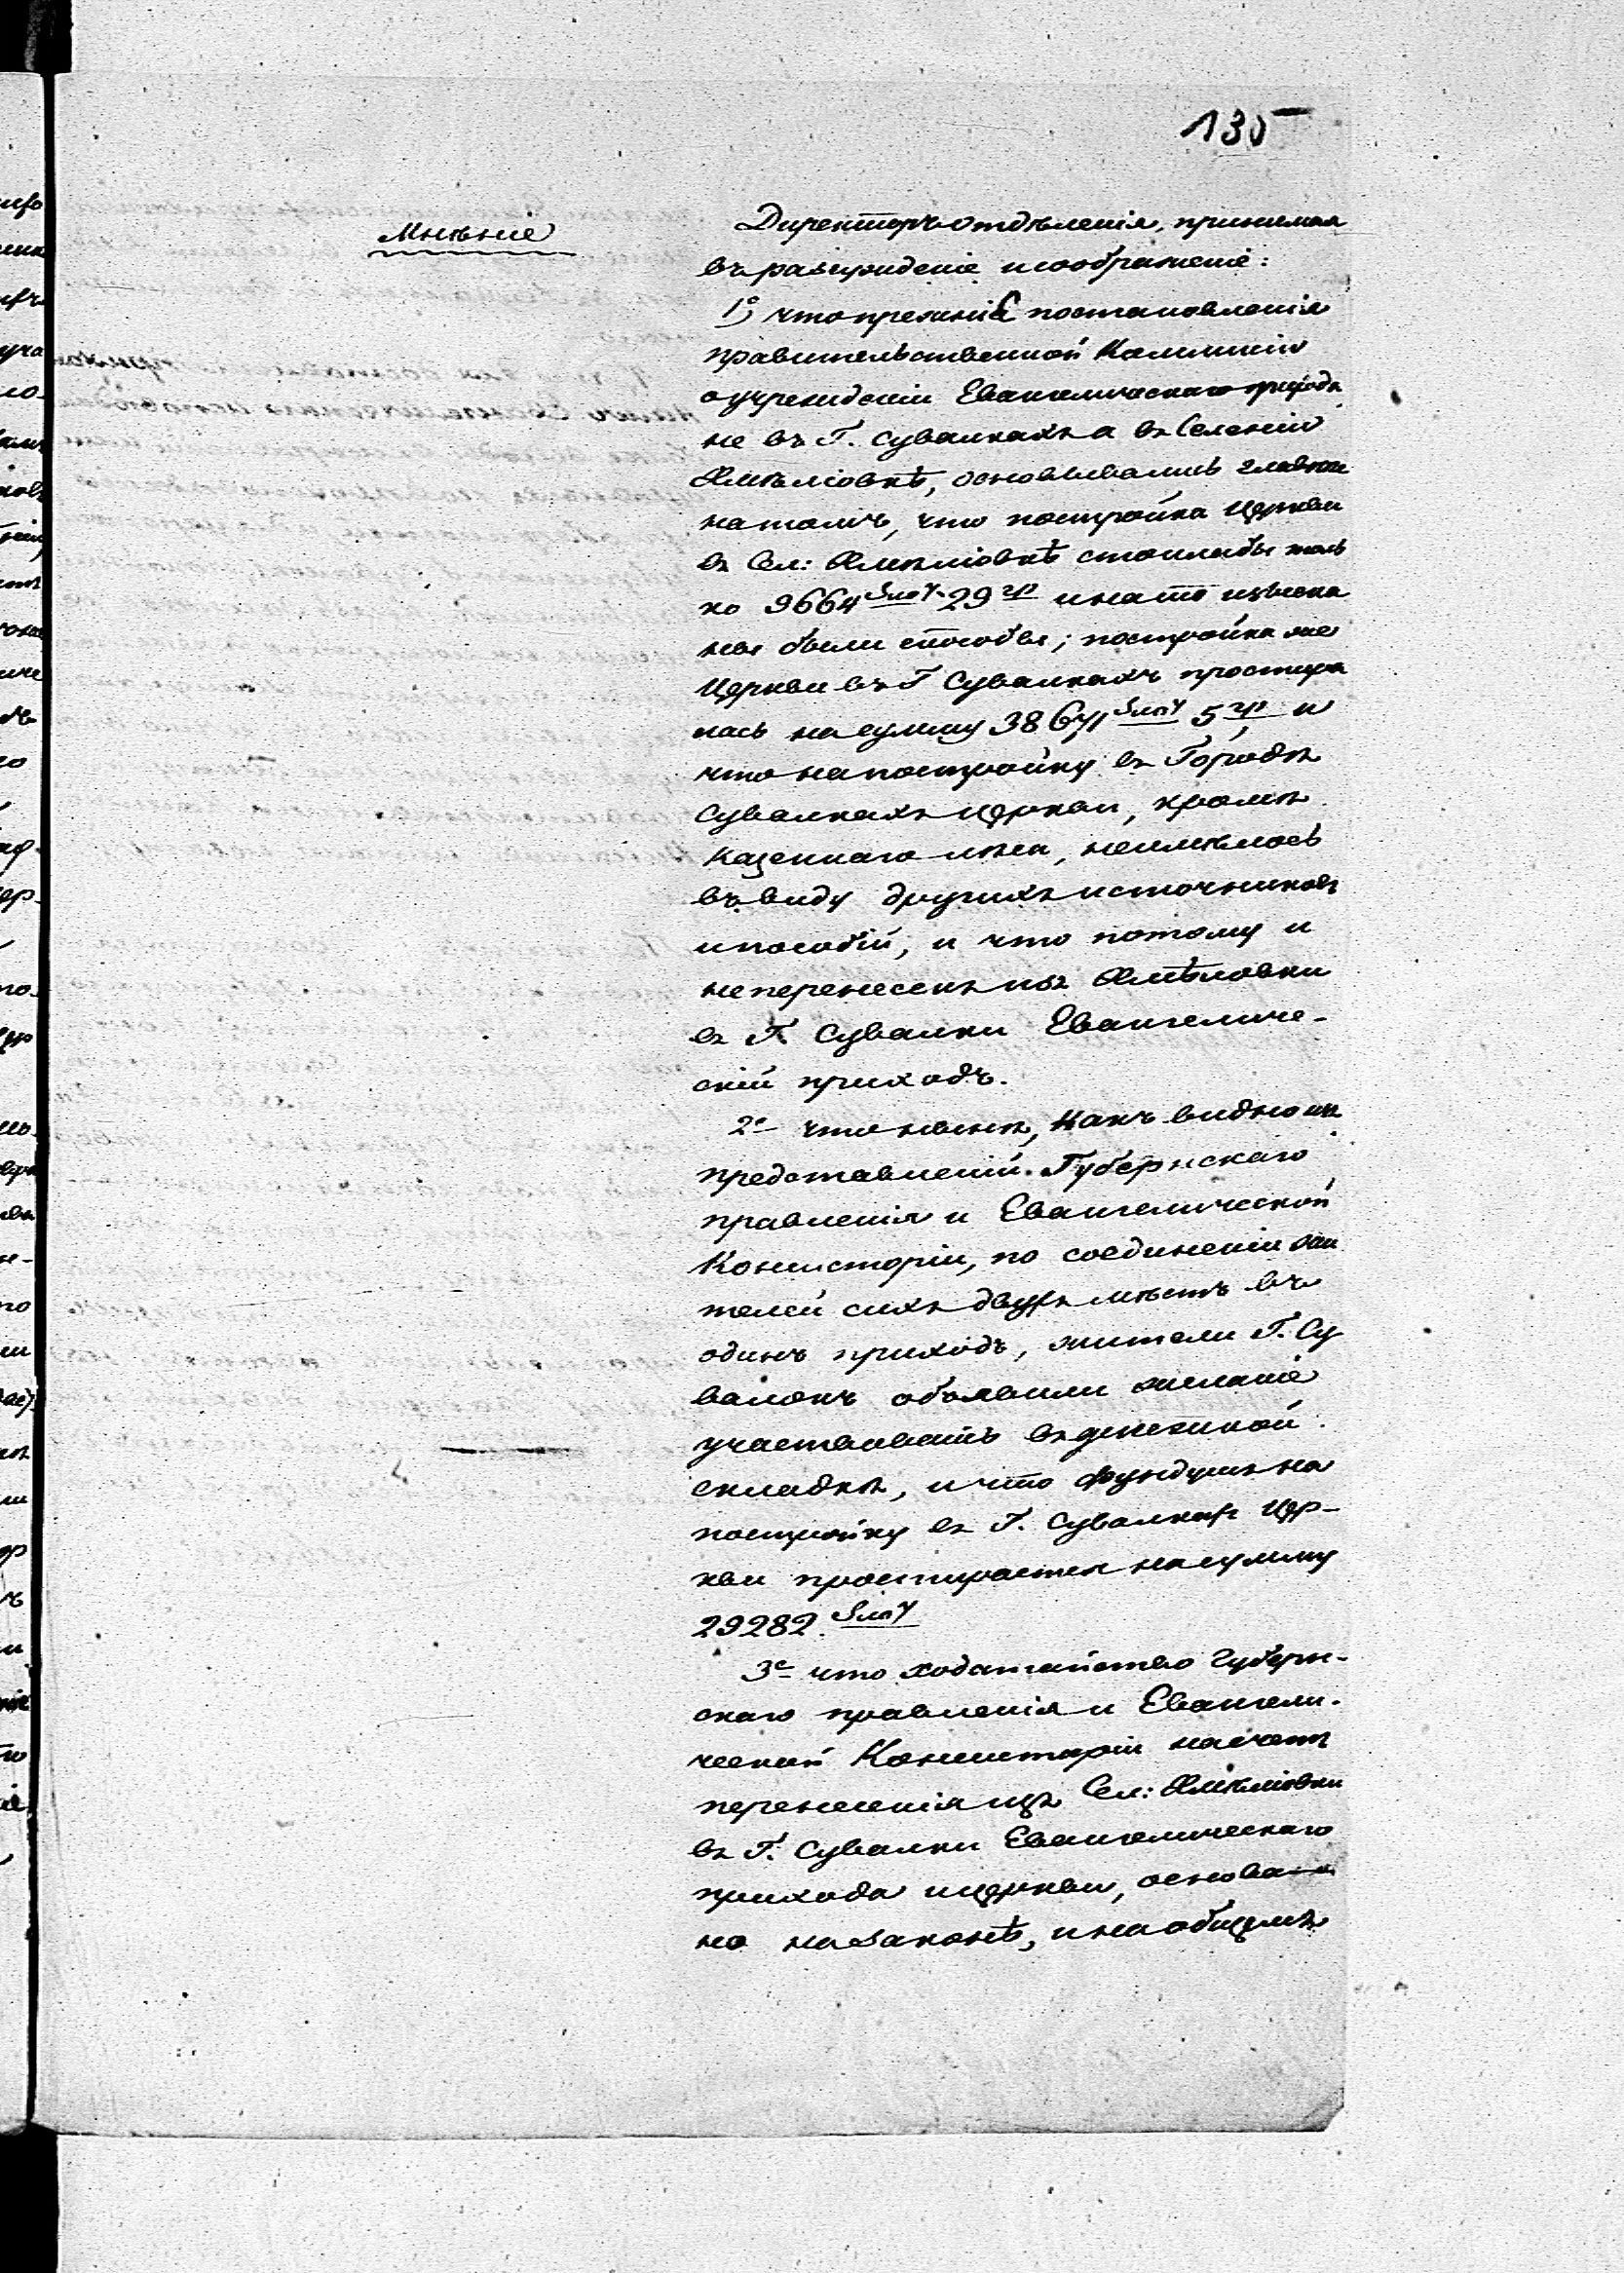 135
Мнѣніе
Директоръ отдѣленія, принимая
въ разсужденіе и соображеніе:
1е что прежнія постановленія
правительственной Коммисіи
о учрежденіи Евангелическаго прихода
не въ Г. Сувалкахъ а въ Селеніи
основывались главно
на томъ, что постройка Церкви
въ Сел: стоила бы толь
ко 9664 злот. 29 гр и на то изыска
ны были способы; постройка же
Церкви въ Г Сувалкахъ простира
лась на сумму 38671 злот 5 гр и
что на постройку въ Городѣ
Сувалкахъ Церкви, кромѣ
казеннаго лѣса, не имѣлось
въ виду другихъ источниковъ
и пособій, и что потому и
не перенесенъ изъ
въ Г. Сувалки Евангеличе-
скій приходъ.
2е что нынѣ, какъ видно изъ
представленій Губернскаго
правленія и Евангелической
Консисторіи, по соединеніи жи
телей сихъ двухъ мѣстъ въ
одинъ приходъ, жители Г. Су
валокъ объявили желаніе
участвовать въ денежной
складкѣ, и что фундушъ на
постройку въ Г. Сувалкахъ Цер-
кви простирается на сумму
29282 злот
3е что ходатайство Губерн-
скаго правленія и Евангели-
ческой Консисторіи насчетъ
перенесенія изъ Сел:
въ Г. Сувалки Евангелическаго
прихода и церкви, основа-
но на законѣ, и на общемъ